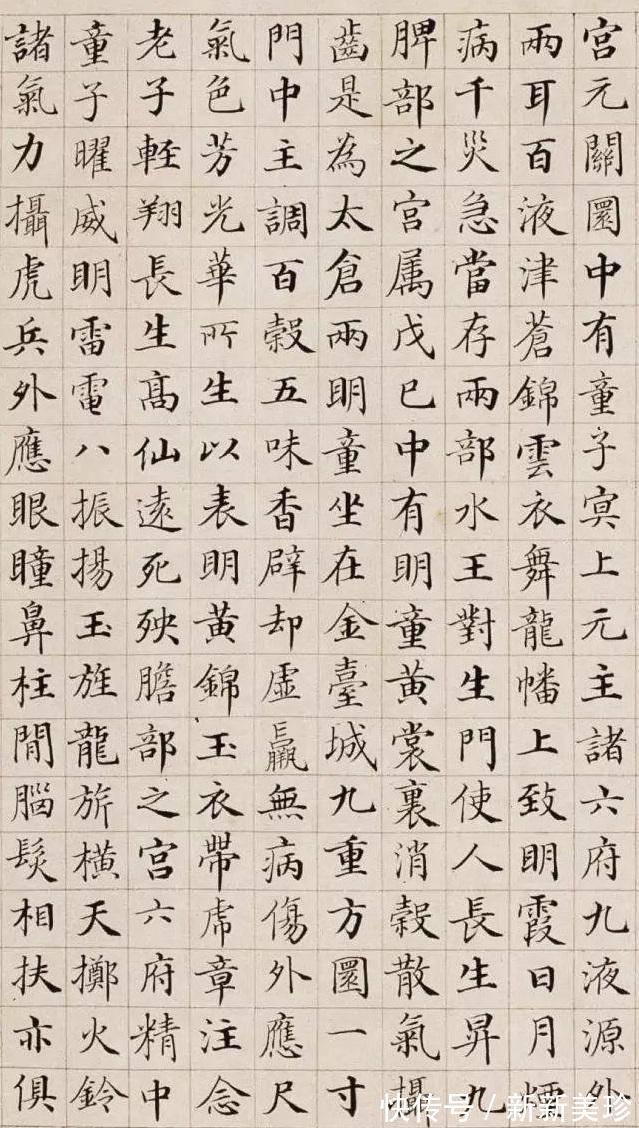 宫元關圎中有童子冥上元主諸六府九液源外
兩耳百液津蒼錦雲衣舞龍幡上致明霞日月煙
病千災急當存兩部水王對生門使人長生昇九
脾部之宫属戊已中有明童黄裳裏消穀散氣攝
齒是為太倉兩明童坐在金臺城九重方圎一寸
門中主調百穀五味香辟却虚羸無病傷外應尺
氣色芳光華所生以表明黄錦玉衣帶虎章注念
老子軽翔長生髙仙遠死殃膽部之宫六府精中
童子曜威明雷電八振揚玉旌龍旂横天擲火鈴
諸氣力攝虎兵外應眼瞳鼻柱間腦髮相扶亦俱
快传号 / 新新美珍